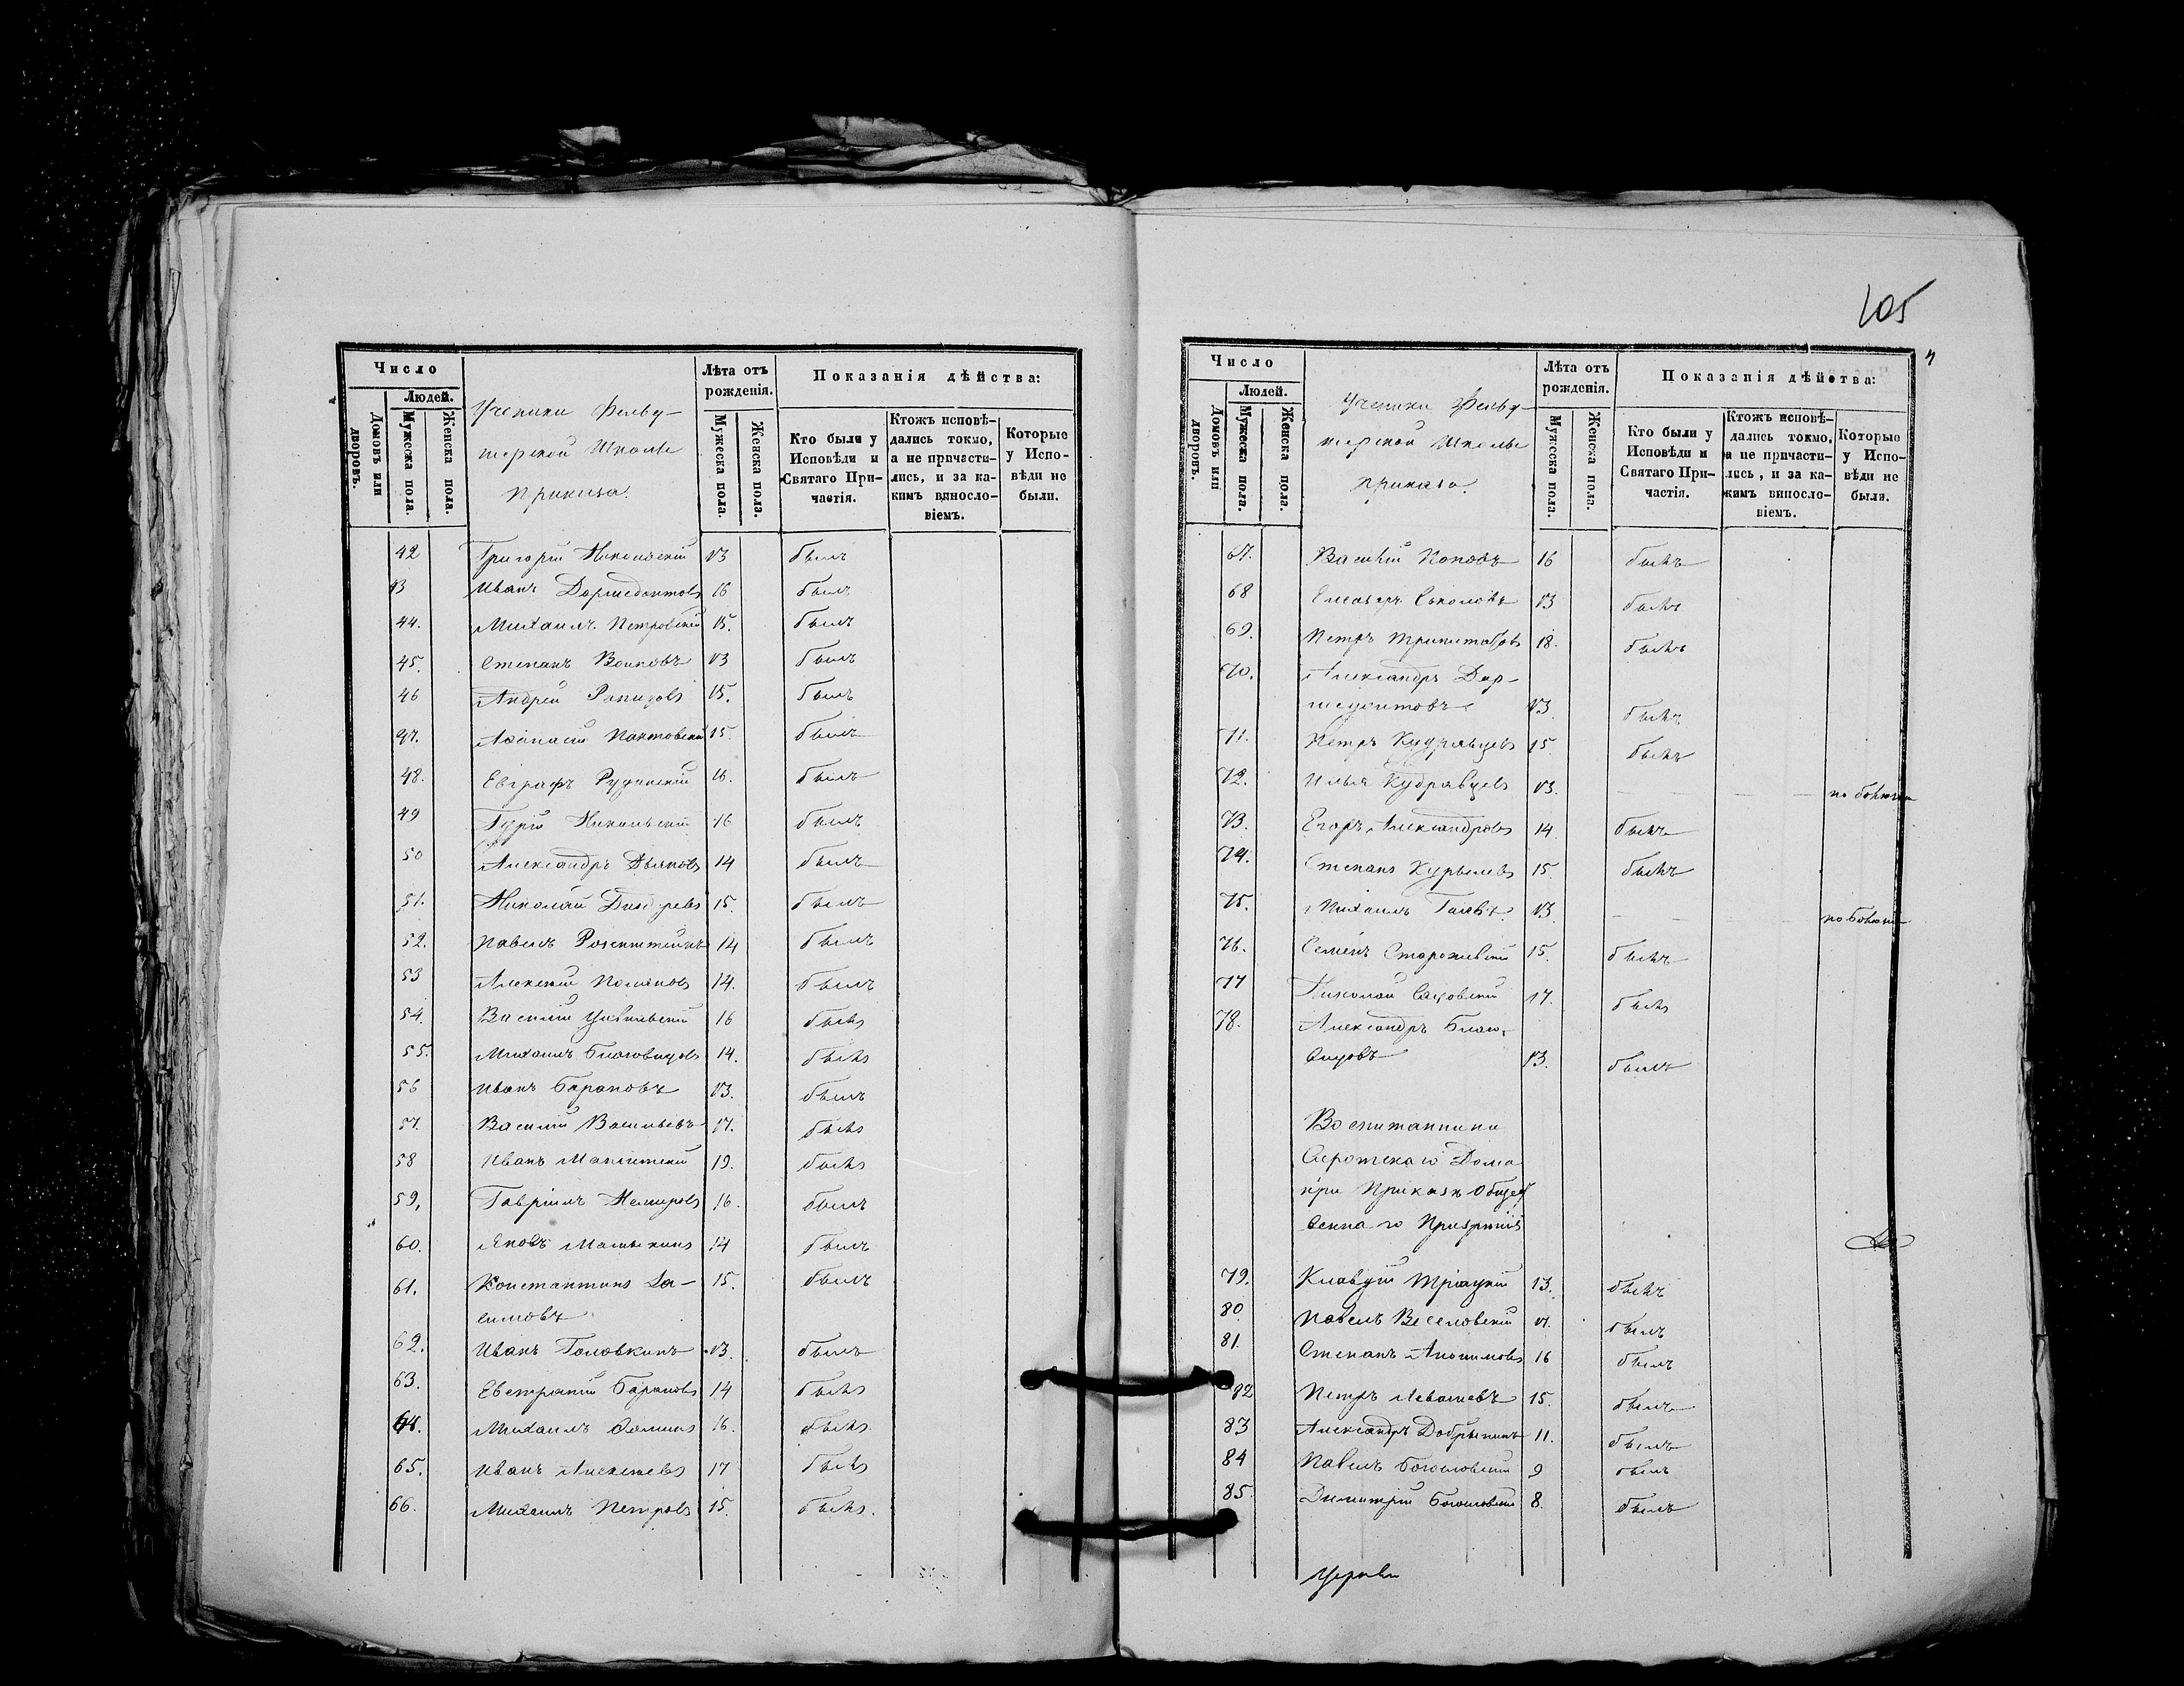 Число
Людей.
Домовъ или дворовъ.
Мужеска пола.
Женска пола.
Ученики Фельд-
шерской Школы
Приказа.
Лѣта отъ
рожденія.
Мужеска пола.
Женска пола.
Показанія дѣйства:
Кто были у
Исповѣди и
Святаго При-
частія.
Ктожъ исповѣ-
дались токмо,
а не причасти-
лись, и за ка-
кимъ винosло-
віемъ.
Которые
у Испо-
вѣди не
были.
42 Григорій Никольскій 13 былъ
43 Иванъ Дормедонтовъ 16 былъ
44. Михаилъ Петровскій 15. былъ
45. Степанъ Волковъ 13 былъ
46 Андрей 15. былъ
47. Афанасій 15. былъ
48. Евграфъ Рудинскій 16. былъ
49 Гурій Никольскій 16 былъ
50 Александръ 14 былъ
51. Николай 15. былъ
52. Павелъ Розенштейнъ 14 былъ
53 Алексей Поляковъ 14. былъ
54. Василій 16 былъ
55. Михаилъ Благовидовъ 14. былъ
56 Иванъ Барановъ 13. былъ
57. Василій Васильевъ 17. былъ
58 Иванъ 19. былъ
59, Гавріилъ 16. былъ
60. Яковъ Малышкинъ 14 былъ
61. Константинъ 15. былъ
62. Иванъ Головкинъ 13. былъ
63. Евстратій Барановъ 14 былъ
64. Михаилъ Фоминъ 16. былъ.
65. Иванъ Алексеевъ 17 былъ
66. Михаилъ Петровъ 15. былъ.
105
Число
Людей.
Домовъ или дворовъ.
Мужеска пола.
Женска пола.
Ученики Фельд-
шерской Школы
Приказа.
Лѣта отъ
рожденія.
Мужеска пола.
Женска пола.
Показанія дѣйства:
Кто были у
Исповѣди и
Святаго При-
частія.
Ктожъ исповѣ-
дались токмо,
а не причасти-
лись, и за ка-
кимъ винослo-
віемъ.
Которые
у Испо-
вѣди не
были.
67. Василій Поповъ 16 былъ
68 Елеазаръ Соколовъ 13 былъ
69. Петръ 18. былъ
70. Александръ Дор-
медонтовъ 13. былъ
71. Петръ Кудрявцевъ 15. былъ
72. Илья Кудрявцевъ 13. по болезни
73. Егоръ Александровъ 14. былъ
74. Степанъ Курылевъ 15. былъ
75. Михаилъ 13. по болезни
76. Семёнъ Сторожевскій 15. былъ
77 Николай Садовскій 17. былъ
78. Александръ Благо-
видовъ 13. былъ
Воспитанники
Сиротскаго Дома
при Приказѣ Общест
веннаго Призрѣнія
79. Клавдій Троицкій 13. былъ
80. Павелъ Веселовскій 17. былъ
81. Степанъ 16 былъ
82 Петръ Левашевъ 15. былъ
83 Александръ Добрынинъ 11. былъ
84 Павелъ Богословскій 9 былъ
85. Димитрій Богословскій 8. былъ
Церкви